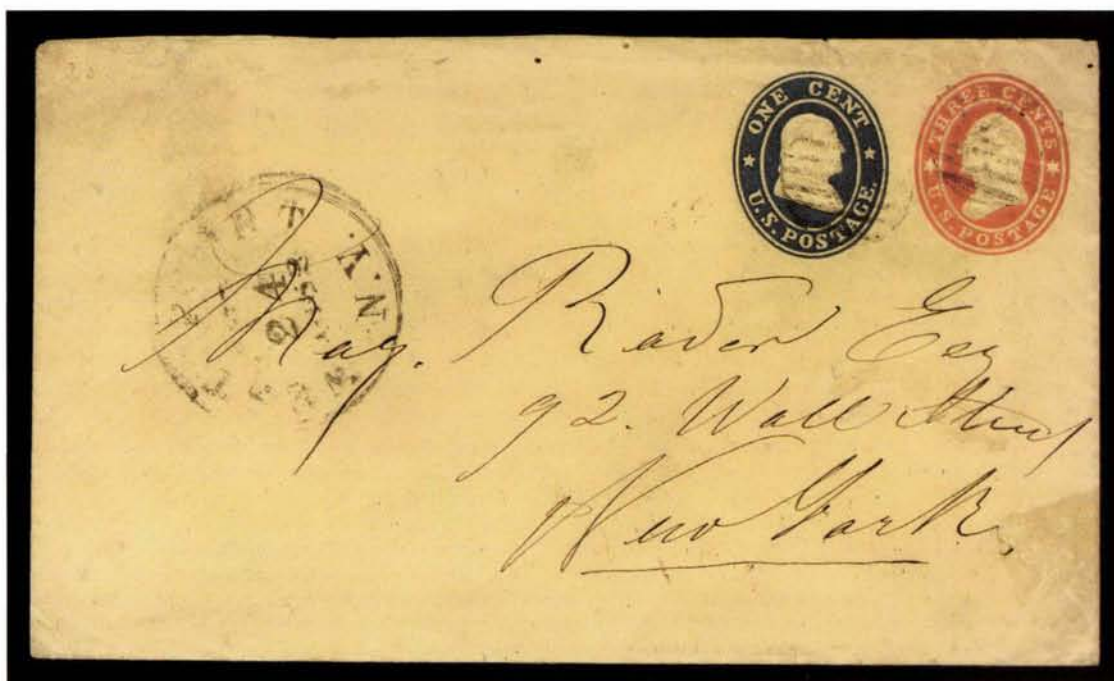 ONE CENT
U.S. POSTAGE.
THREE CENTS
U.S. POSTAGE
N.Y.
May. Rader Esq
92. Wall Street
New York